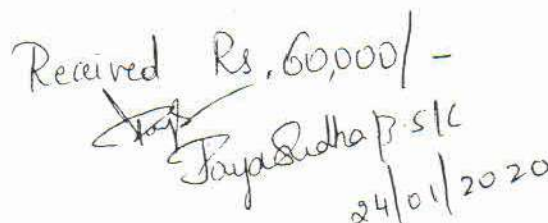 Received Rs.60,000/-
Jayasudha B.S/C
24/01/2020